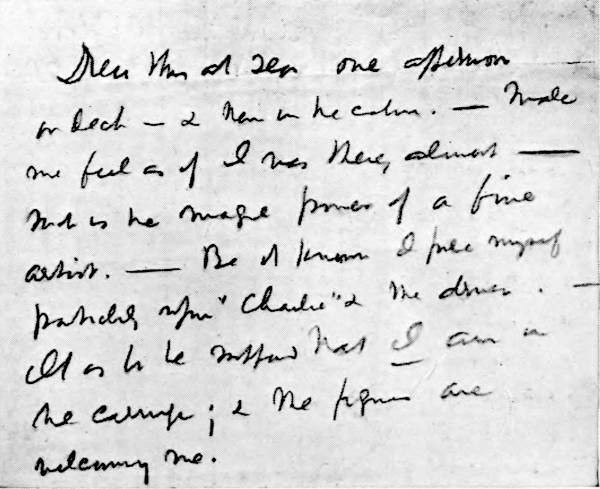 Drew this at sea one afternoon
on deck — & then in the cabin. — Made
me feel as if I was there, almost —
such is the magic power of a fine
artist. — Be it known I pride myself
particularly upon "Charlie" & the driver. —
It is to be supposed that I am in
the carriage; & the figures are
welcoming me.